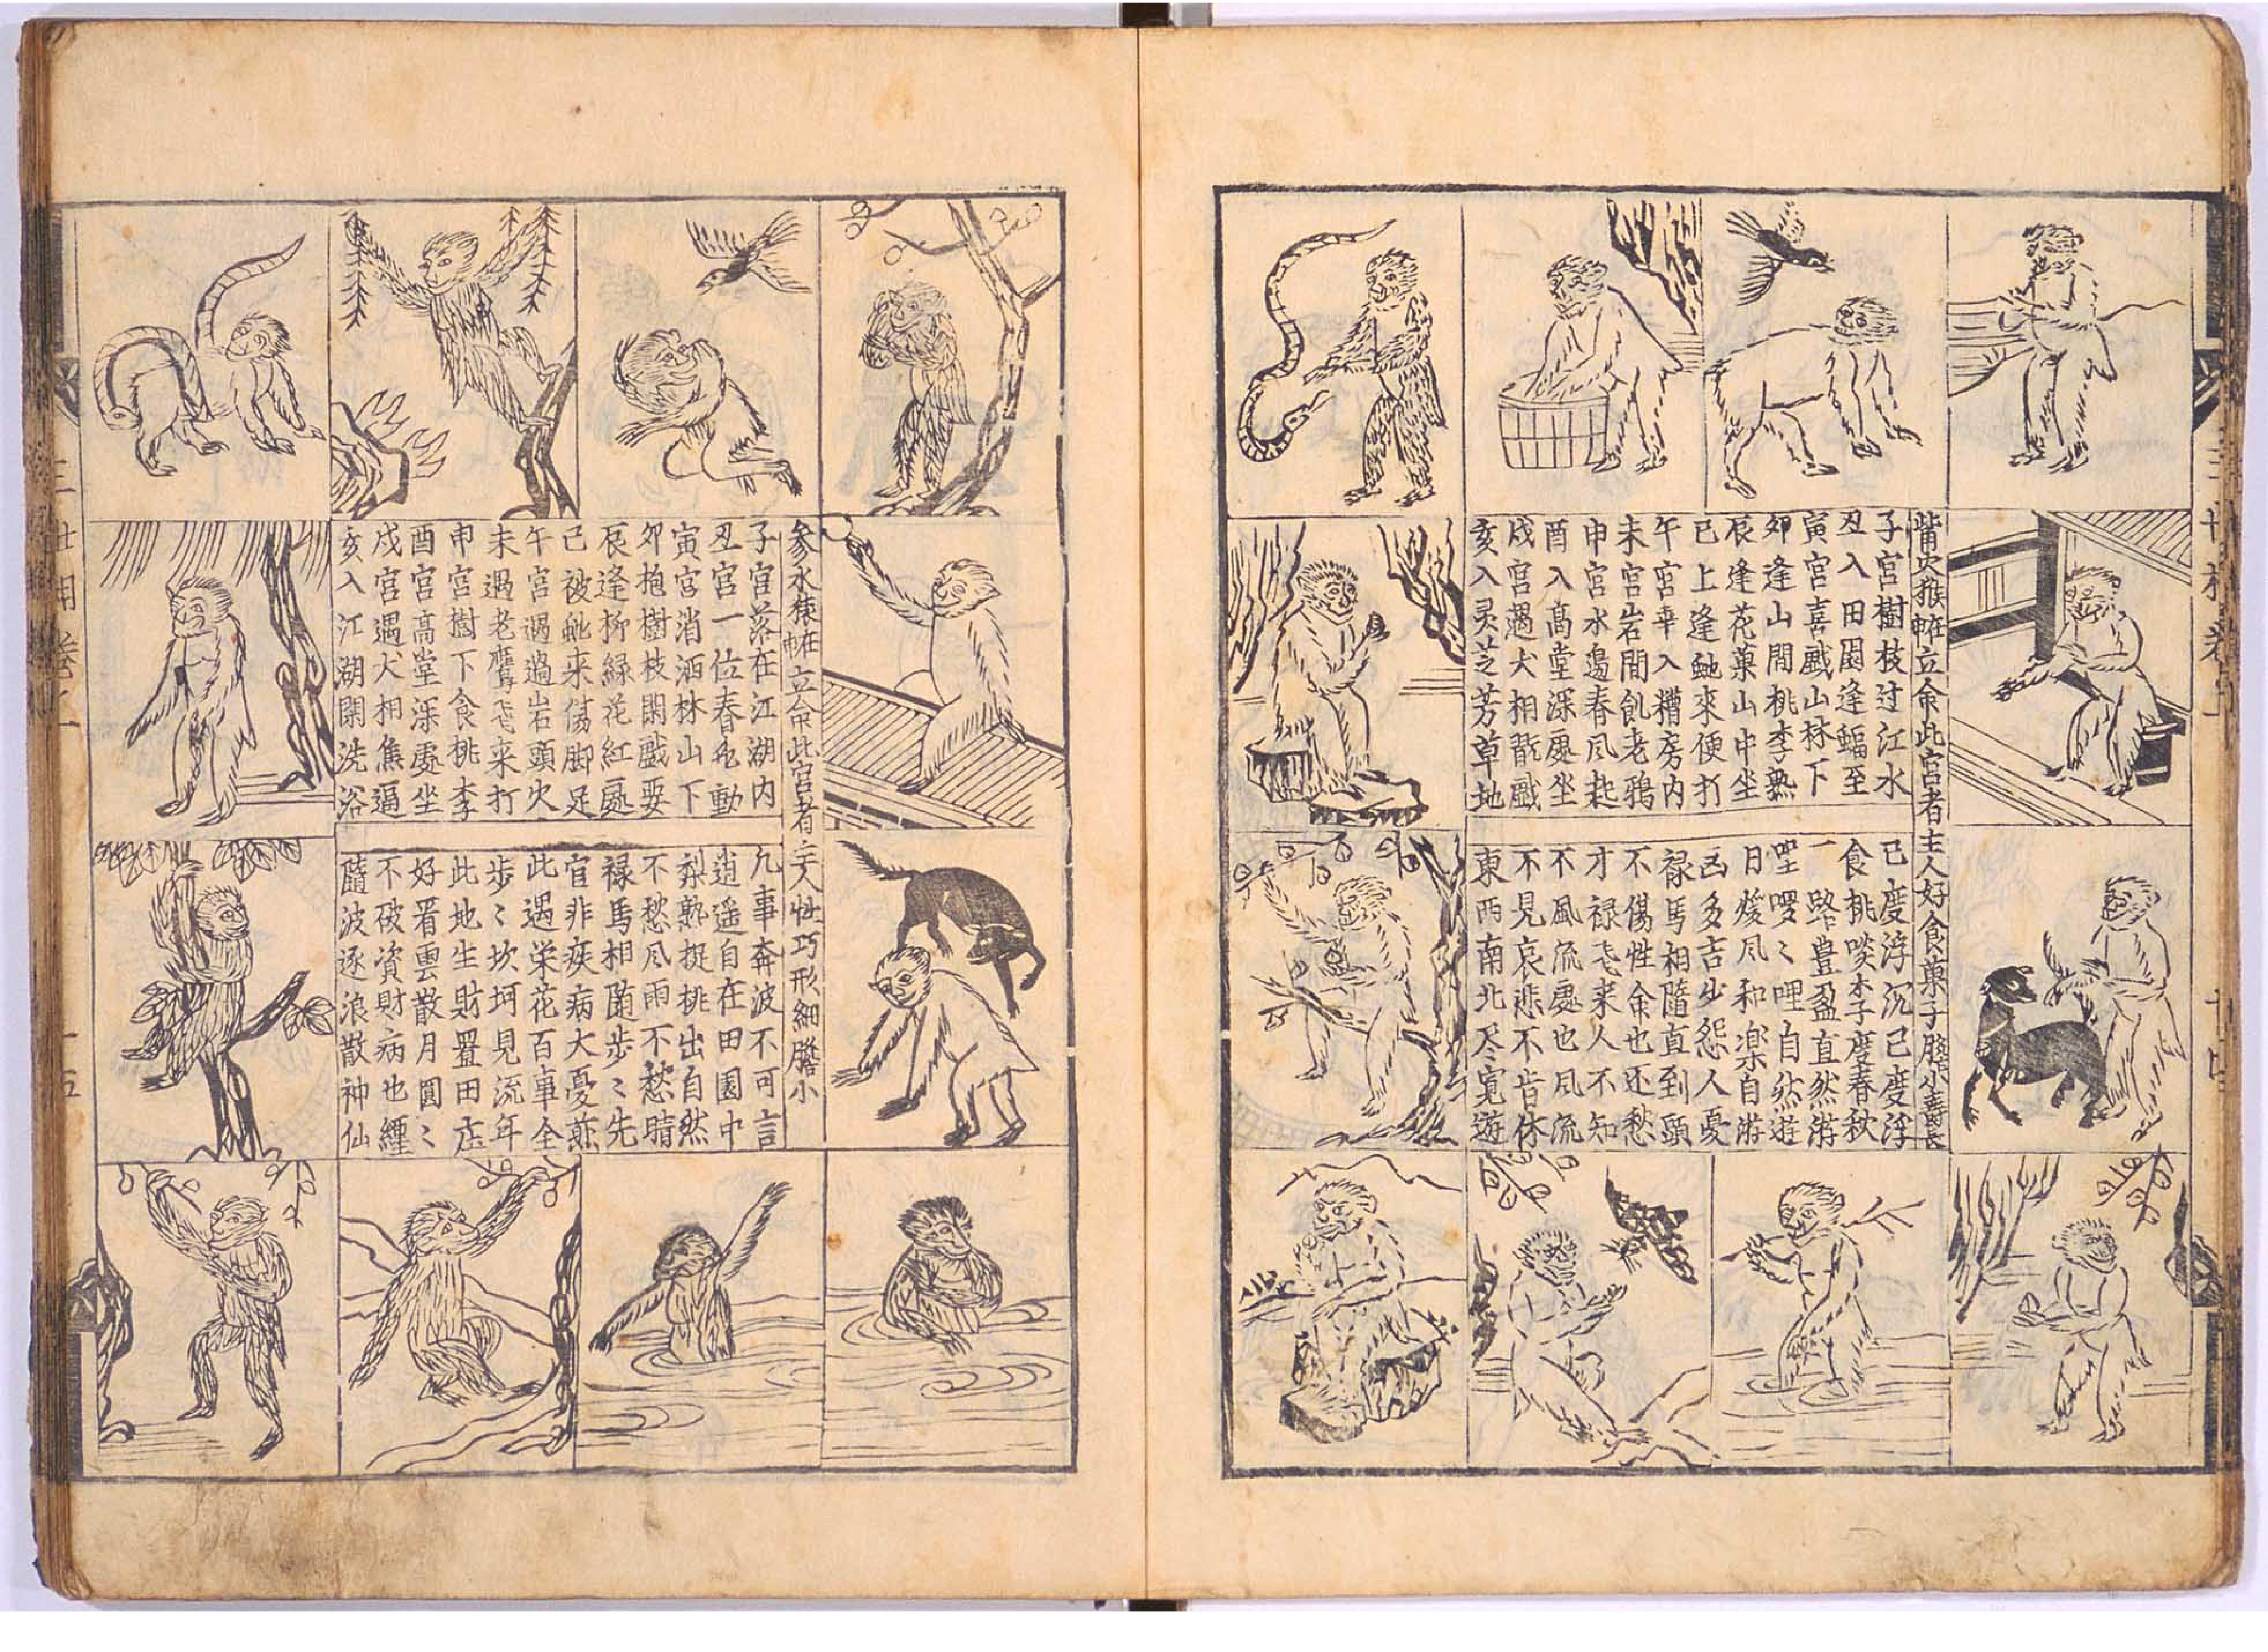 觜火猴帷立命此宮者主人好食菓子膽小壽長
子宮樹枝过江水
丑入田園逢蝠至
寅宮喜戲山林下
夘逢山間桃李熟
辰逢花菓山中坐
巳上逢虵來便打
午宮幸入糟房内
未宮岩間飢老鴉
申宮水邊春凮起
酉入高堂深處坐
戌宮遇犬相戲
亥入灵芝芳草地
已度浮沉已度浮
食桃啖李子度春秋
一路豊盈直然游
哩囉〻哩自然遊
日煖凮和樂自游
凶多吉少怨人憂
禄馬相隨直到頭
不傷性命也还愁
才禄飞来人不知
不風流處也凮流
不見哀悲不肯休
東西南北尽寬遊
三世相卷一
十四
參水猿帷立命此宮者主人性巧形細膽小
子宮落在江湖内
丑宮一位春色動
寅宮消洒林山下
夘抱樹枝閑戲耍
辰逢柳緑花紅處
巳被虵来傷脚足
午宮過過岩頭火
未遇老鷹飞来打
申宮樹下食桃李
酉宮高堂深處坐
戌宮遇犬相焦逼
亥入江湖閑洗浴
凡事奔波不可言
逍遥自在田園中
梨熟挺桃出自然
不愁凮雨不愁晴
禄馬相随步〻先
官非疾病大憂煎
此遇栄花百事全
步〻坎坷見流年
此地生財置田庄
好看雲散月圓〻
不破資財病也纏
隨波逐浪散神仙
三世相卷一
十五